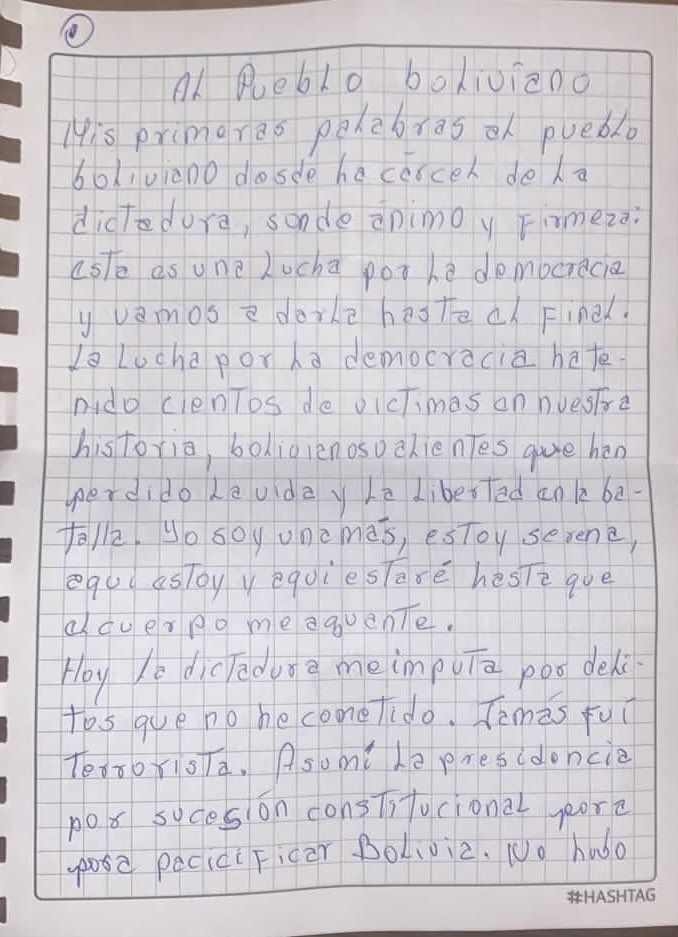 1
Al Pueblo boliviano
Mis primeras palabras al pueblo
boliviano desde la cárcel de la
dictadura, son de ánimo y firmeza:
esta es una lucha por la democracia
y vamos a darla hasta el final.
La lucha por la democracia ha te-
nido cientos de victimas en nuestra
historia, bolivianos valientes que han
perdido la vida y la libertad en la ba-
talla. Yo soy una más, estoy serena,
aqui estoy y aqui estaré hasta que
el cuerpo me aguante.
Hoy la dictadura me imputa por deli-
tos que no he cometido. Jamás fuí
terrorista. Asumí la presidencia
por sucesión constitucional para
para pacicificar Bolivia. No hubo
#HASHTAG